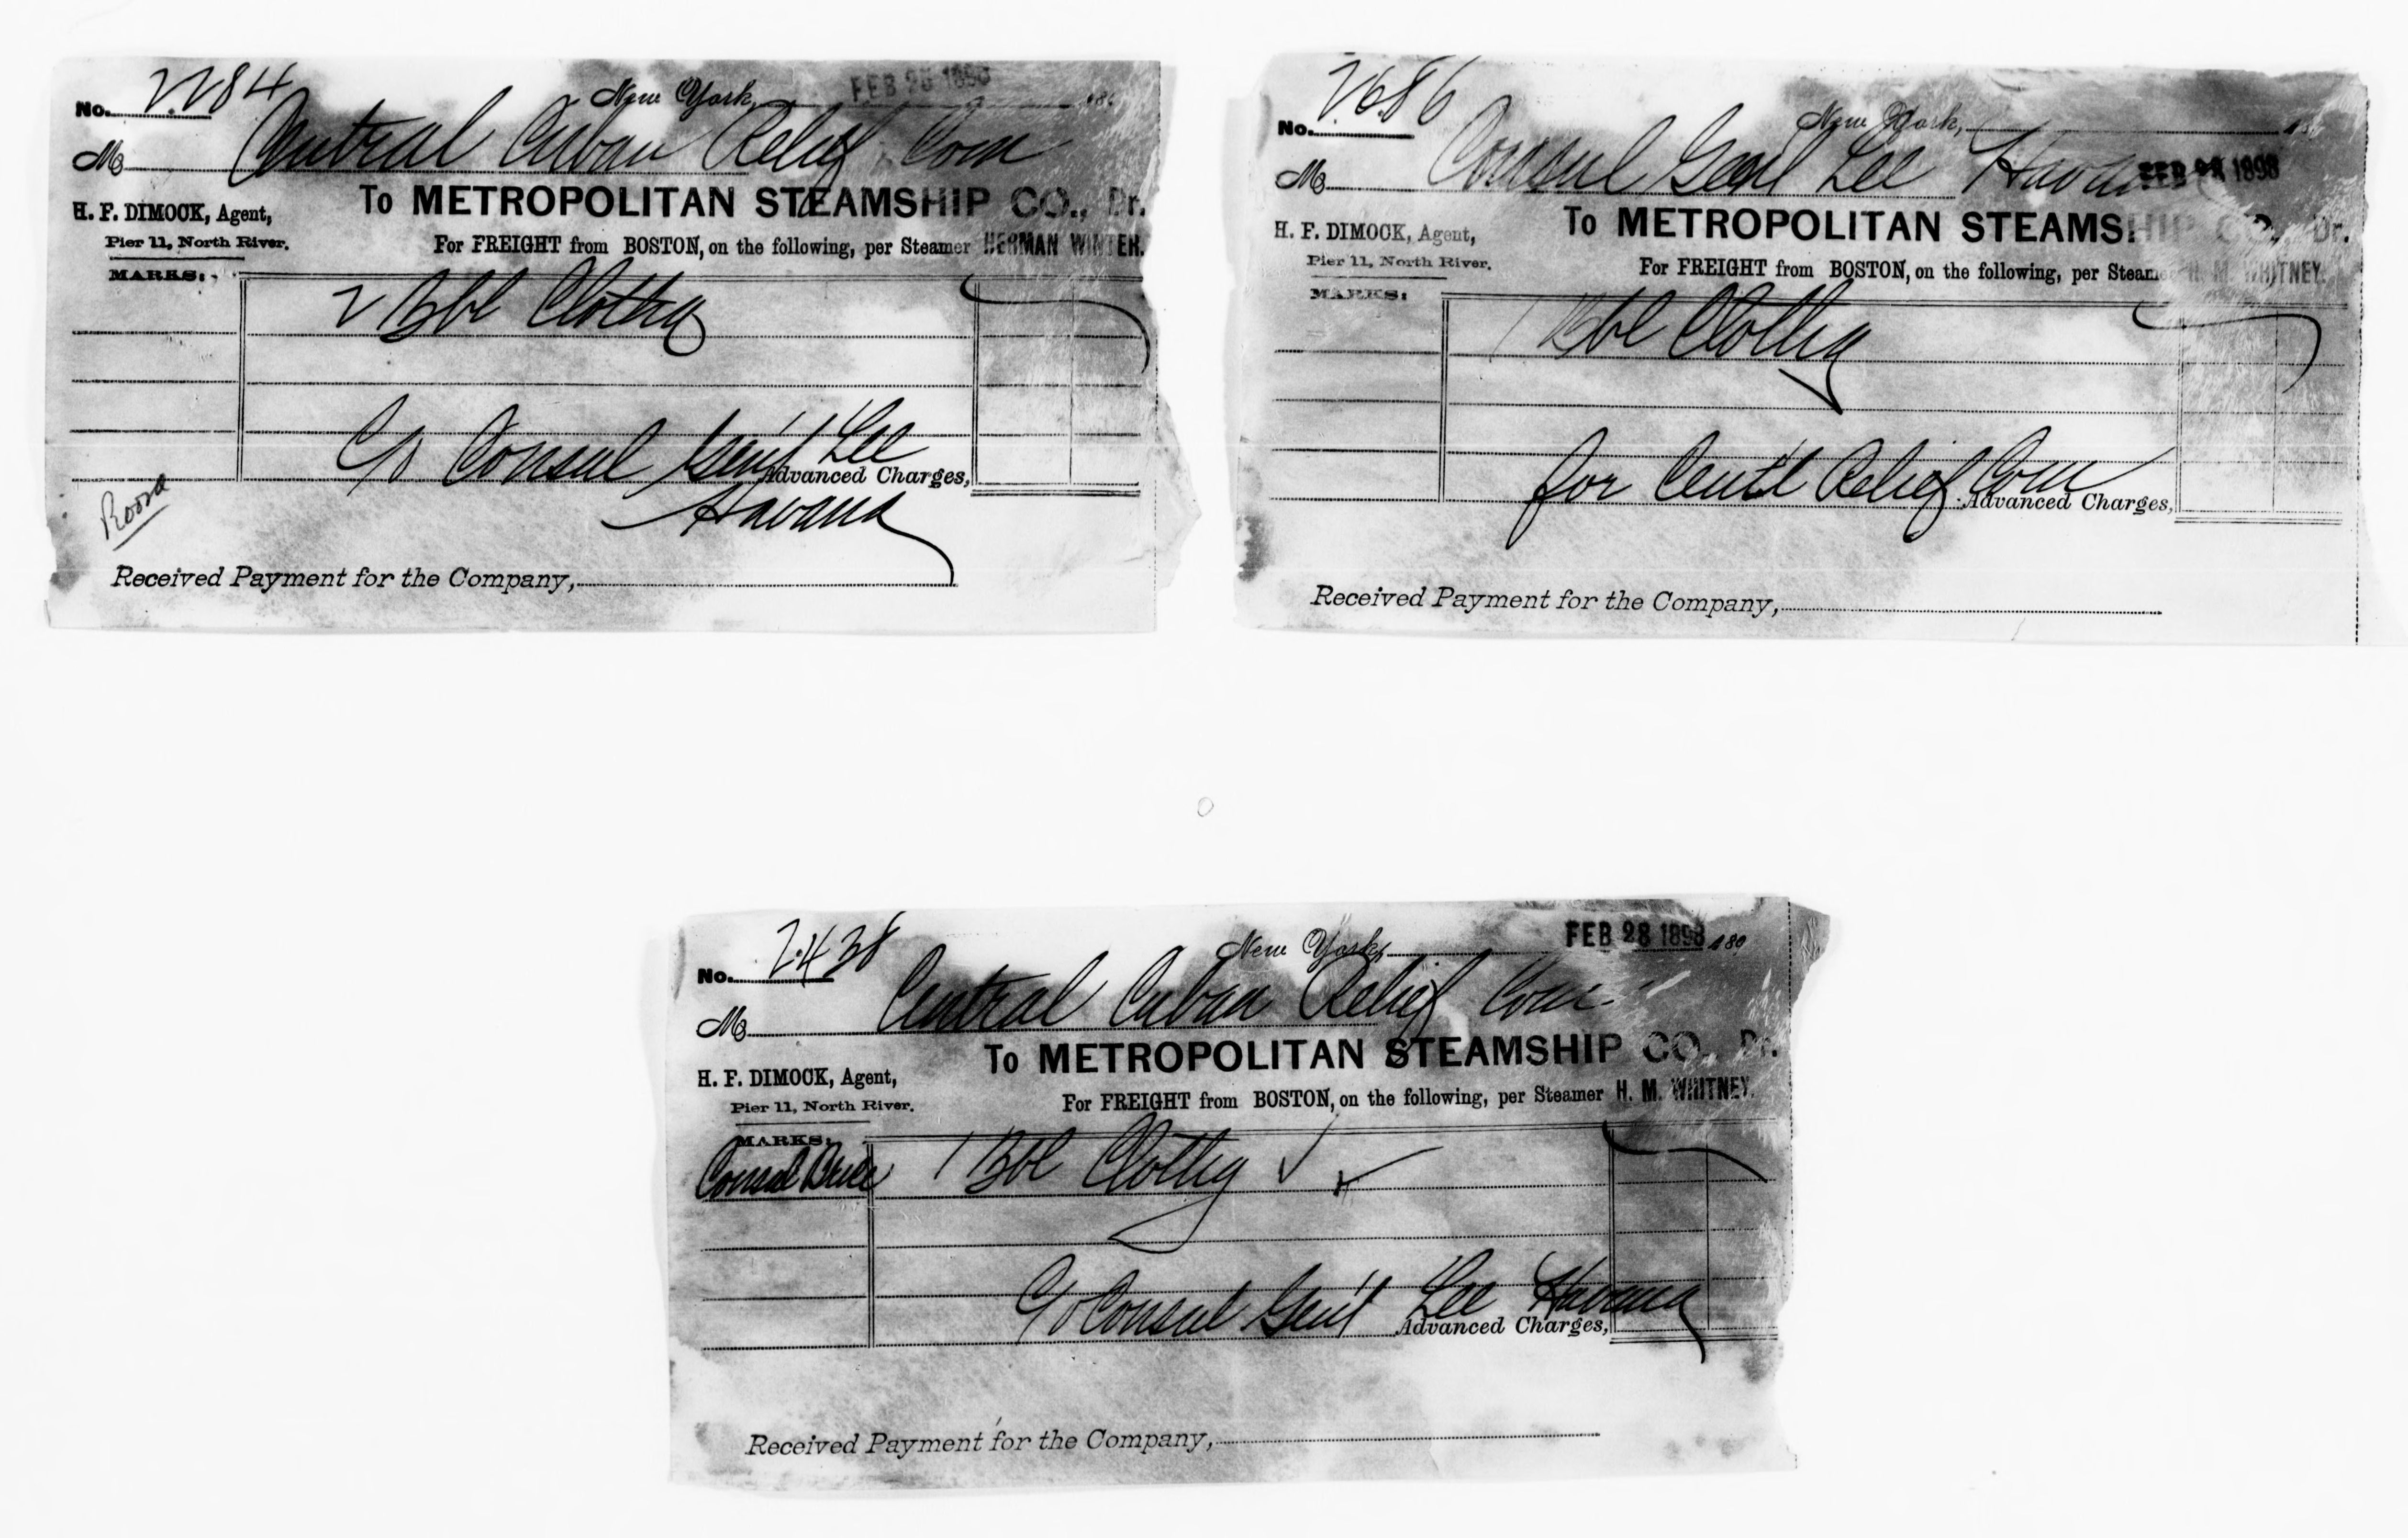 No. 2284 New York, FEB 1898 189
M Central Cuban Relief Com
To METROPOLITAN STEAMSHIP CO., Dr.
H. F. DIMOCK, Agent,
Pier 11, North River.
For FREIGHT from BOSTON, on the following, per Steamer HERMAN WINTER.
MARKS:
2 Bbl Clothg
C/o Consul Gen'l Lee
Advanced Charges,
Havana
Received Payment for the Company,
No. 2686 New York,
M Consul Genl Lee Havana FEB 1898
To METROPOLITAN STEAMSHIP CO., Dr.
H. F. DIMOCK, Agent,
Pier 11, North River.
For FREIGHT from BOSTON, on the following, per Steamer H. M. WHITNEY.
MARKS:
1 Bbl Clothg
for Cent'l Relief Com
Advanced Charges,
Received Payment for the Company,
No. 2438 New York, FEB 28 1898 189
M Central Cuban Relief Com
To METROPOLITAN STEAMSHIP CO., Dr.
H. F. DIMOCK, Agent,
Pier 11, North River.
For FREIGHT from BOSTON, on the following, per Steamer H. M. WHITNEY.
MARKS:
Consul 1 Bbl Clothg
C/o Consul Gen'l Lee Havana
Advanced Charges,
Received Payment for the Company,